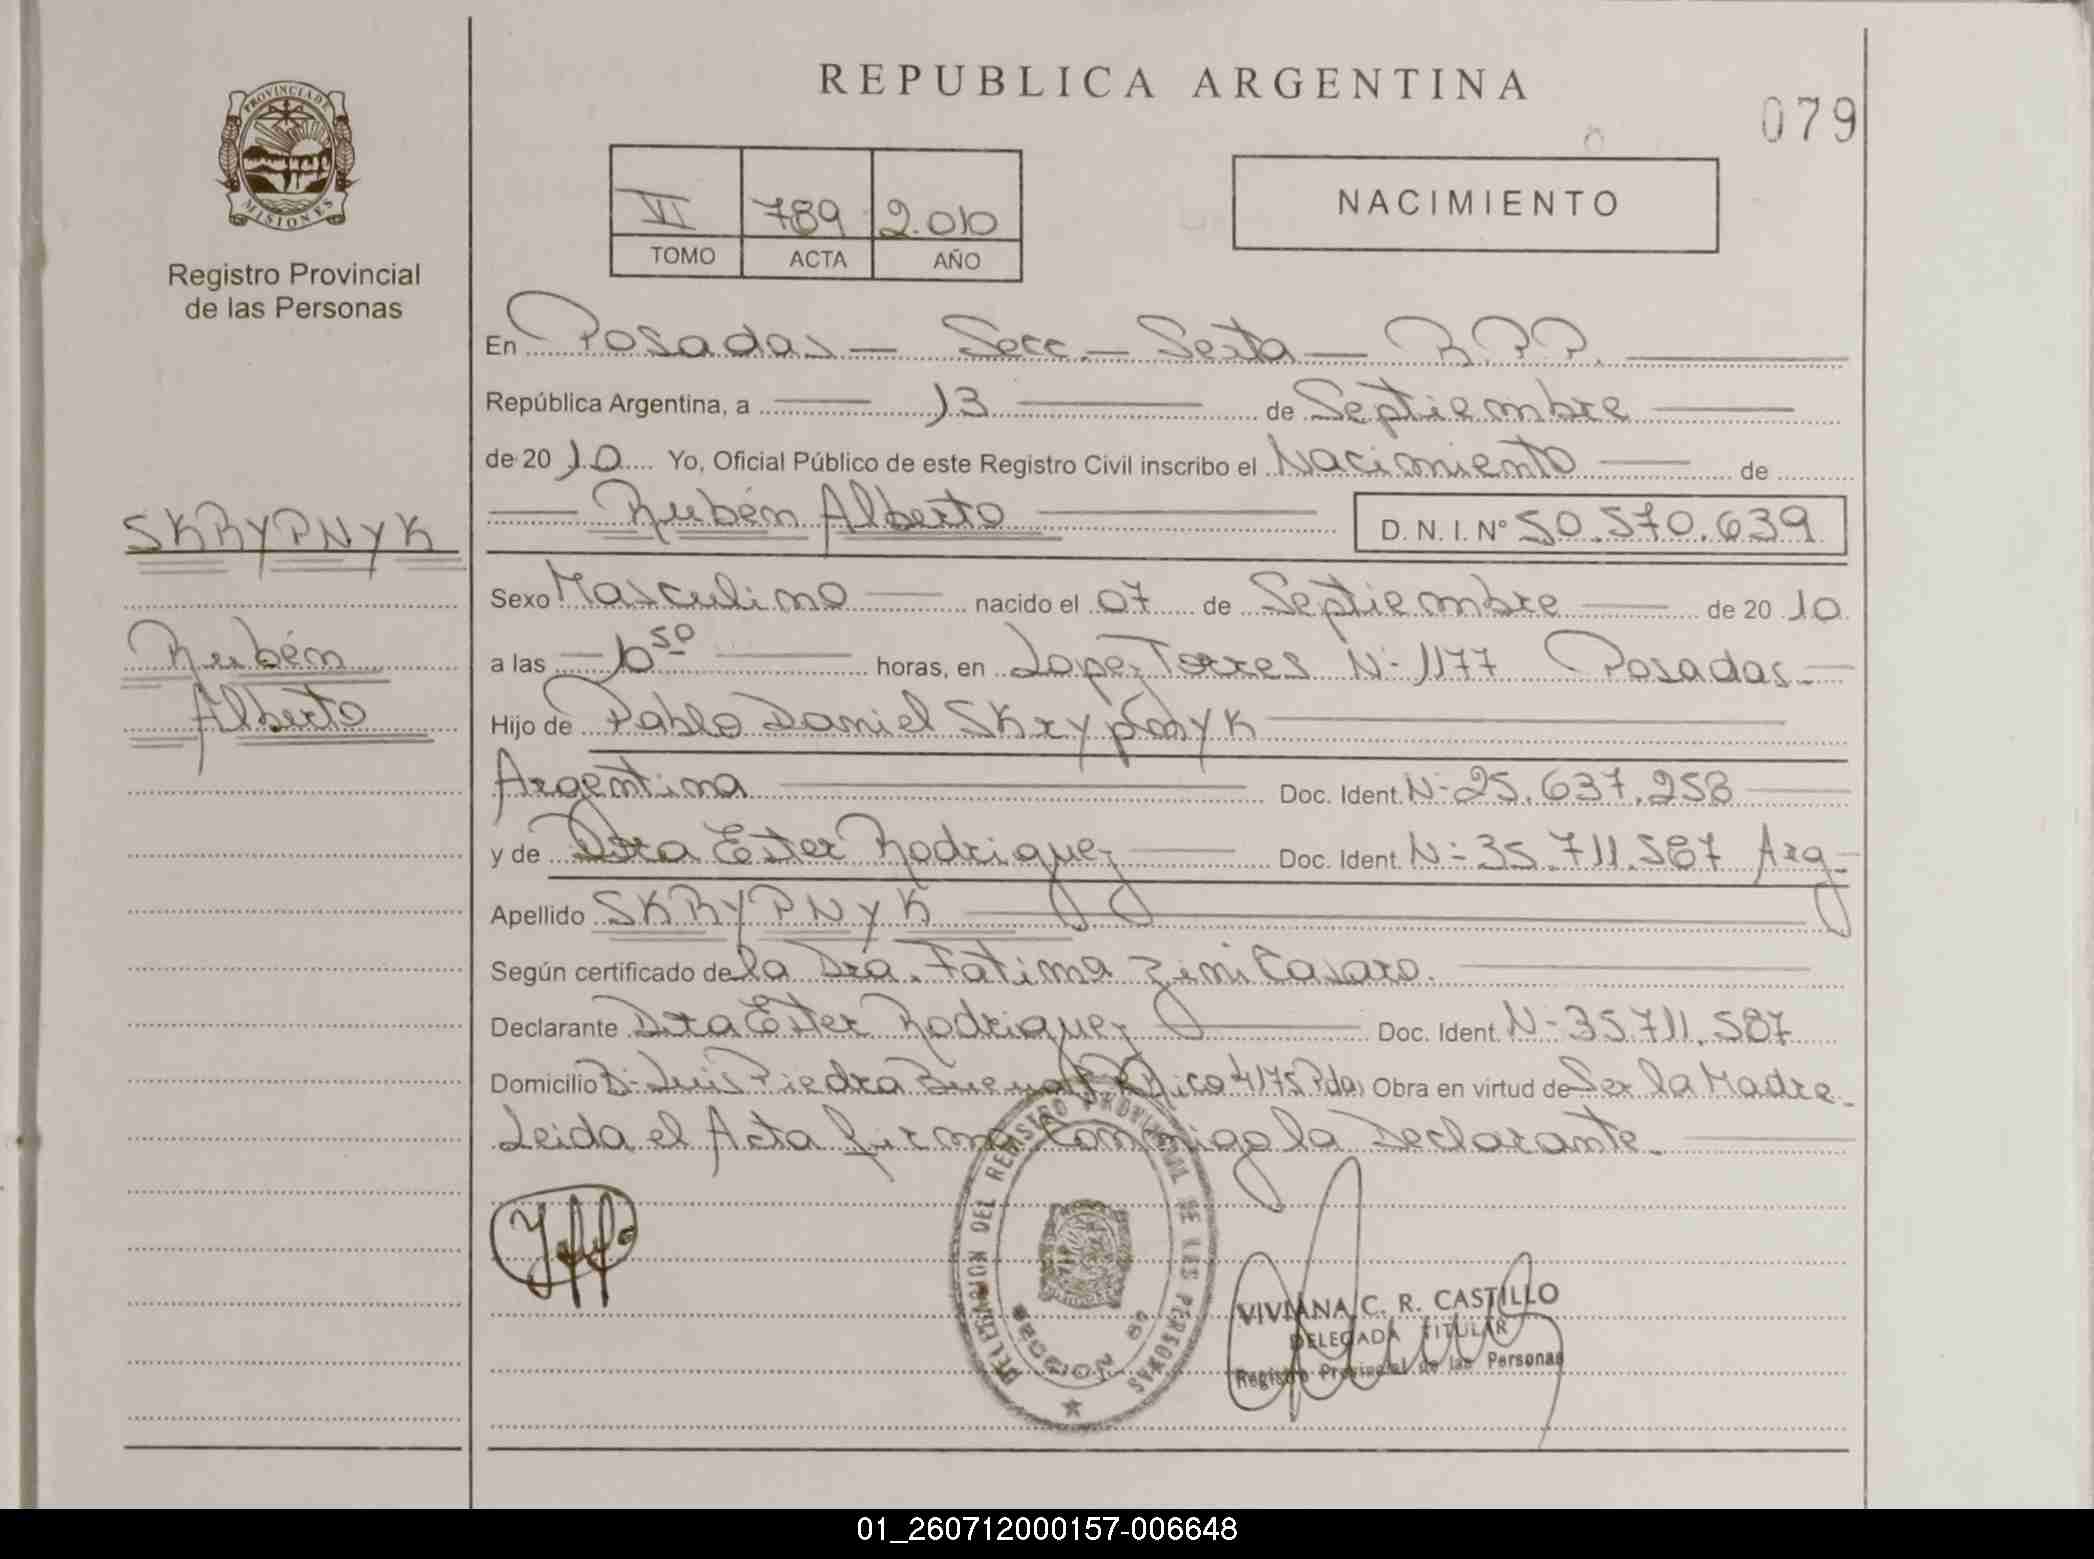 PROVINCIA DE
MISIONES
Registro Provincial
de las Personas
SKRYPNYK
Rubén
Alberto
REPUBLICA ARGENTINA
079
VI 789 2.010
TOMO ACTA AÑO
NACIMIENTO
En Posadas — Secc — Sexta — R.P.P.
República Argentina, a 13 de Septiembre
de 2010 Yo, Oficial Público de este Registro Civil inscribo el Nacimiento de
Rubén Alberto D. N. I. Nº 50.570.639
Sexo Masculino nacido el 07 de Septiembre de 2010
a las 10 50 horas, en Lopez Torres Nº 1177 Posadas
Hijo de Pablo Daniel Skrypnyk
Argentina Doc. Ident. Nº 25.637.258
y de Ester Rodriguez Doc. Ident. Nº 35.711.587 Arg
Apellido SKRYPNYK
Según certificado de la Dra. Fatima Casaro.
Declarante Ester Rodriguez Doc. Ident. Nº 35.711.587
Domicilio Bº Luis Piedra Buena 4175 Pdas Obra en virtud de Ser la Madre
Leida el Acta firma Conmigo la Declarante.
DELEGACION DEL REGISTRO PROVINCIAL DE LAS PERSONAS
SECCION 6ª
VIVIANA C. R. CASTILLO
DELEGADA TITULAR
Registro Provincial de las Personas
01_260712000157-006648